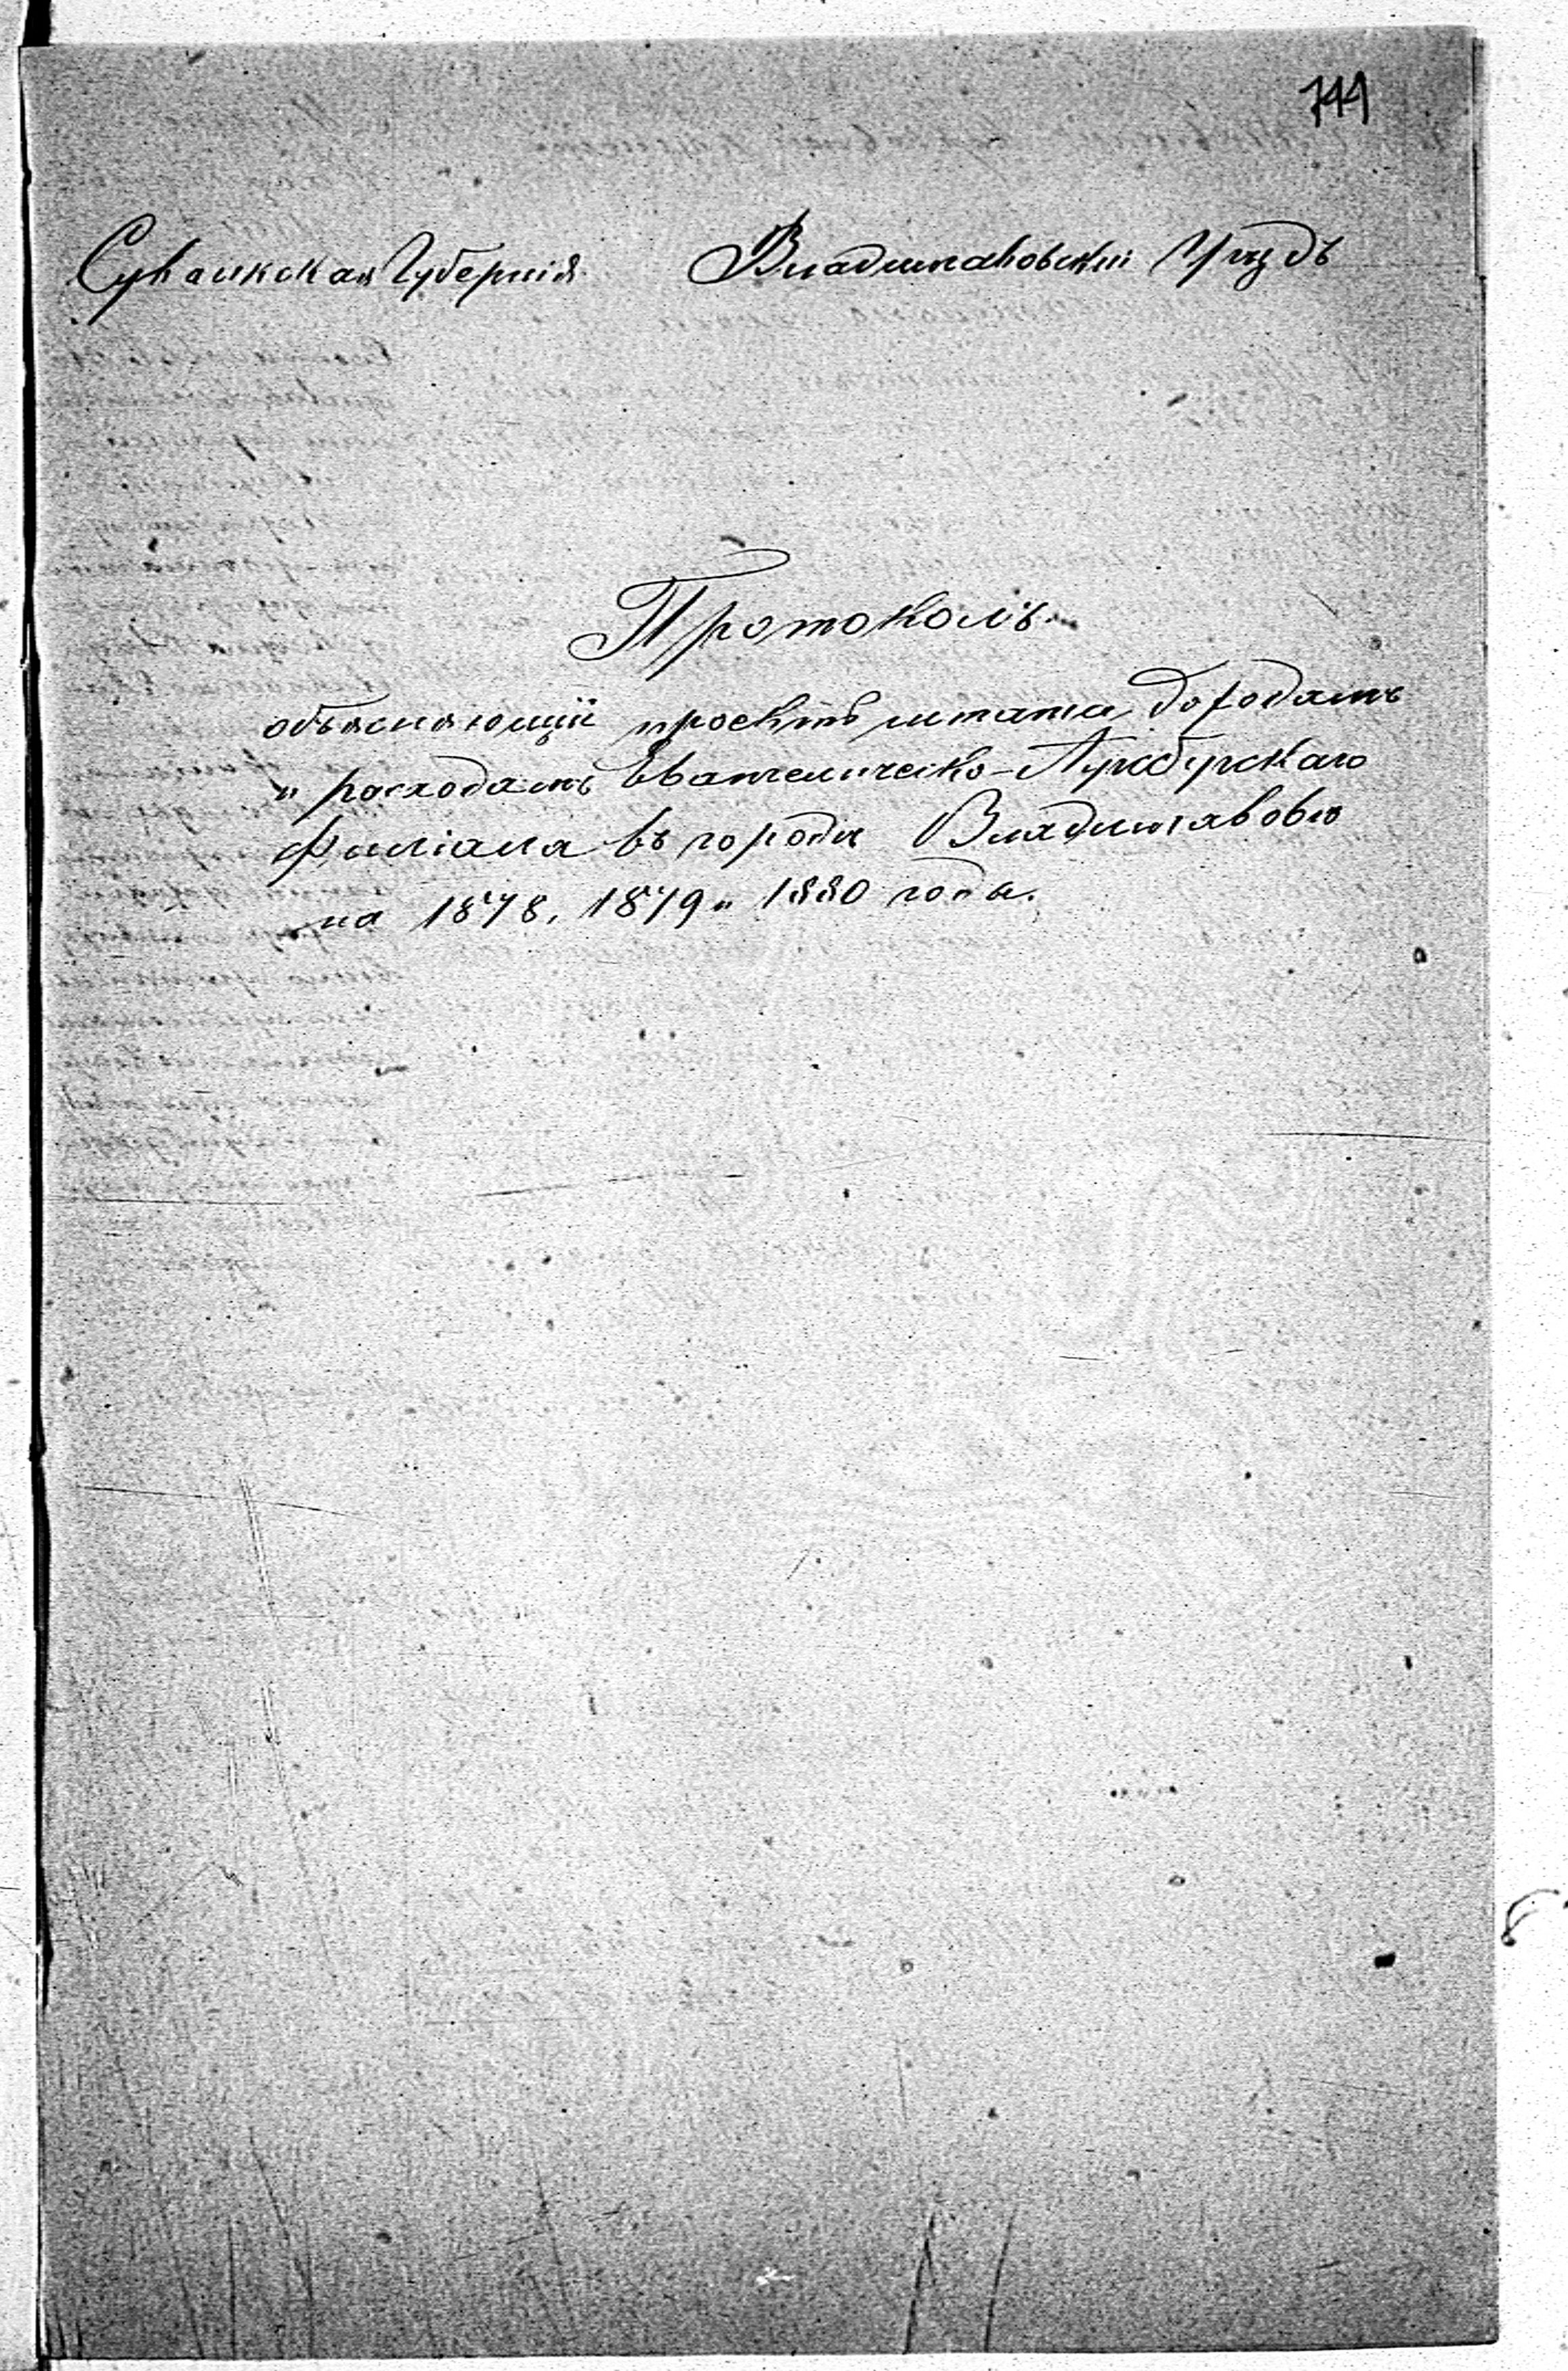 749
Сувалкская Губернія Владиславовскій Уѣздъ
Протоколъ
объясняющій проектъ штата доходамъ
и расходамъ Евангелическо-Аугсбургскаго
Филіала въ городѣ Владиславовѣ
на 1878, 1879 и 1880 годы.